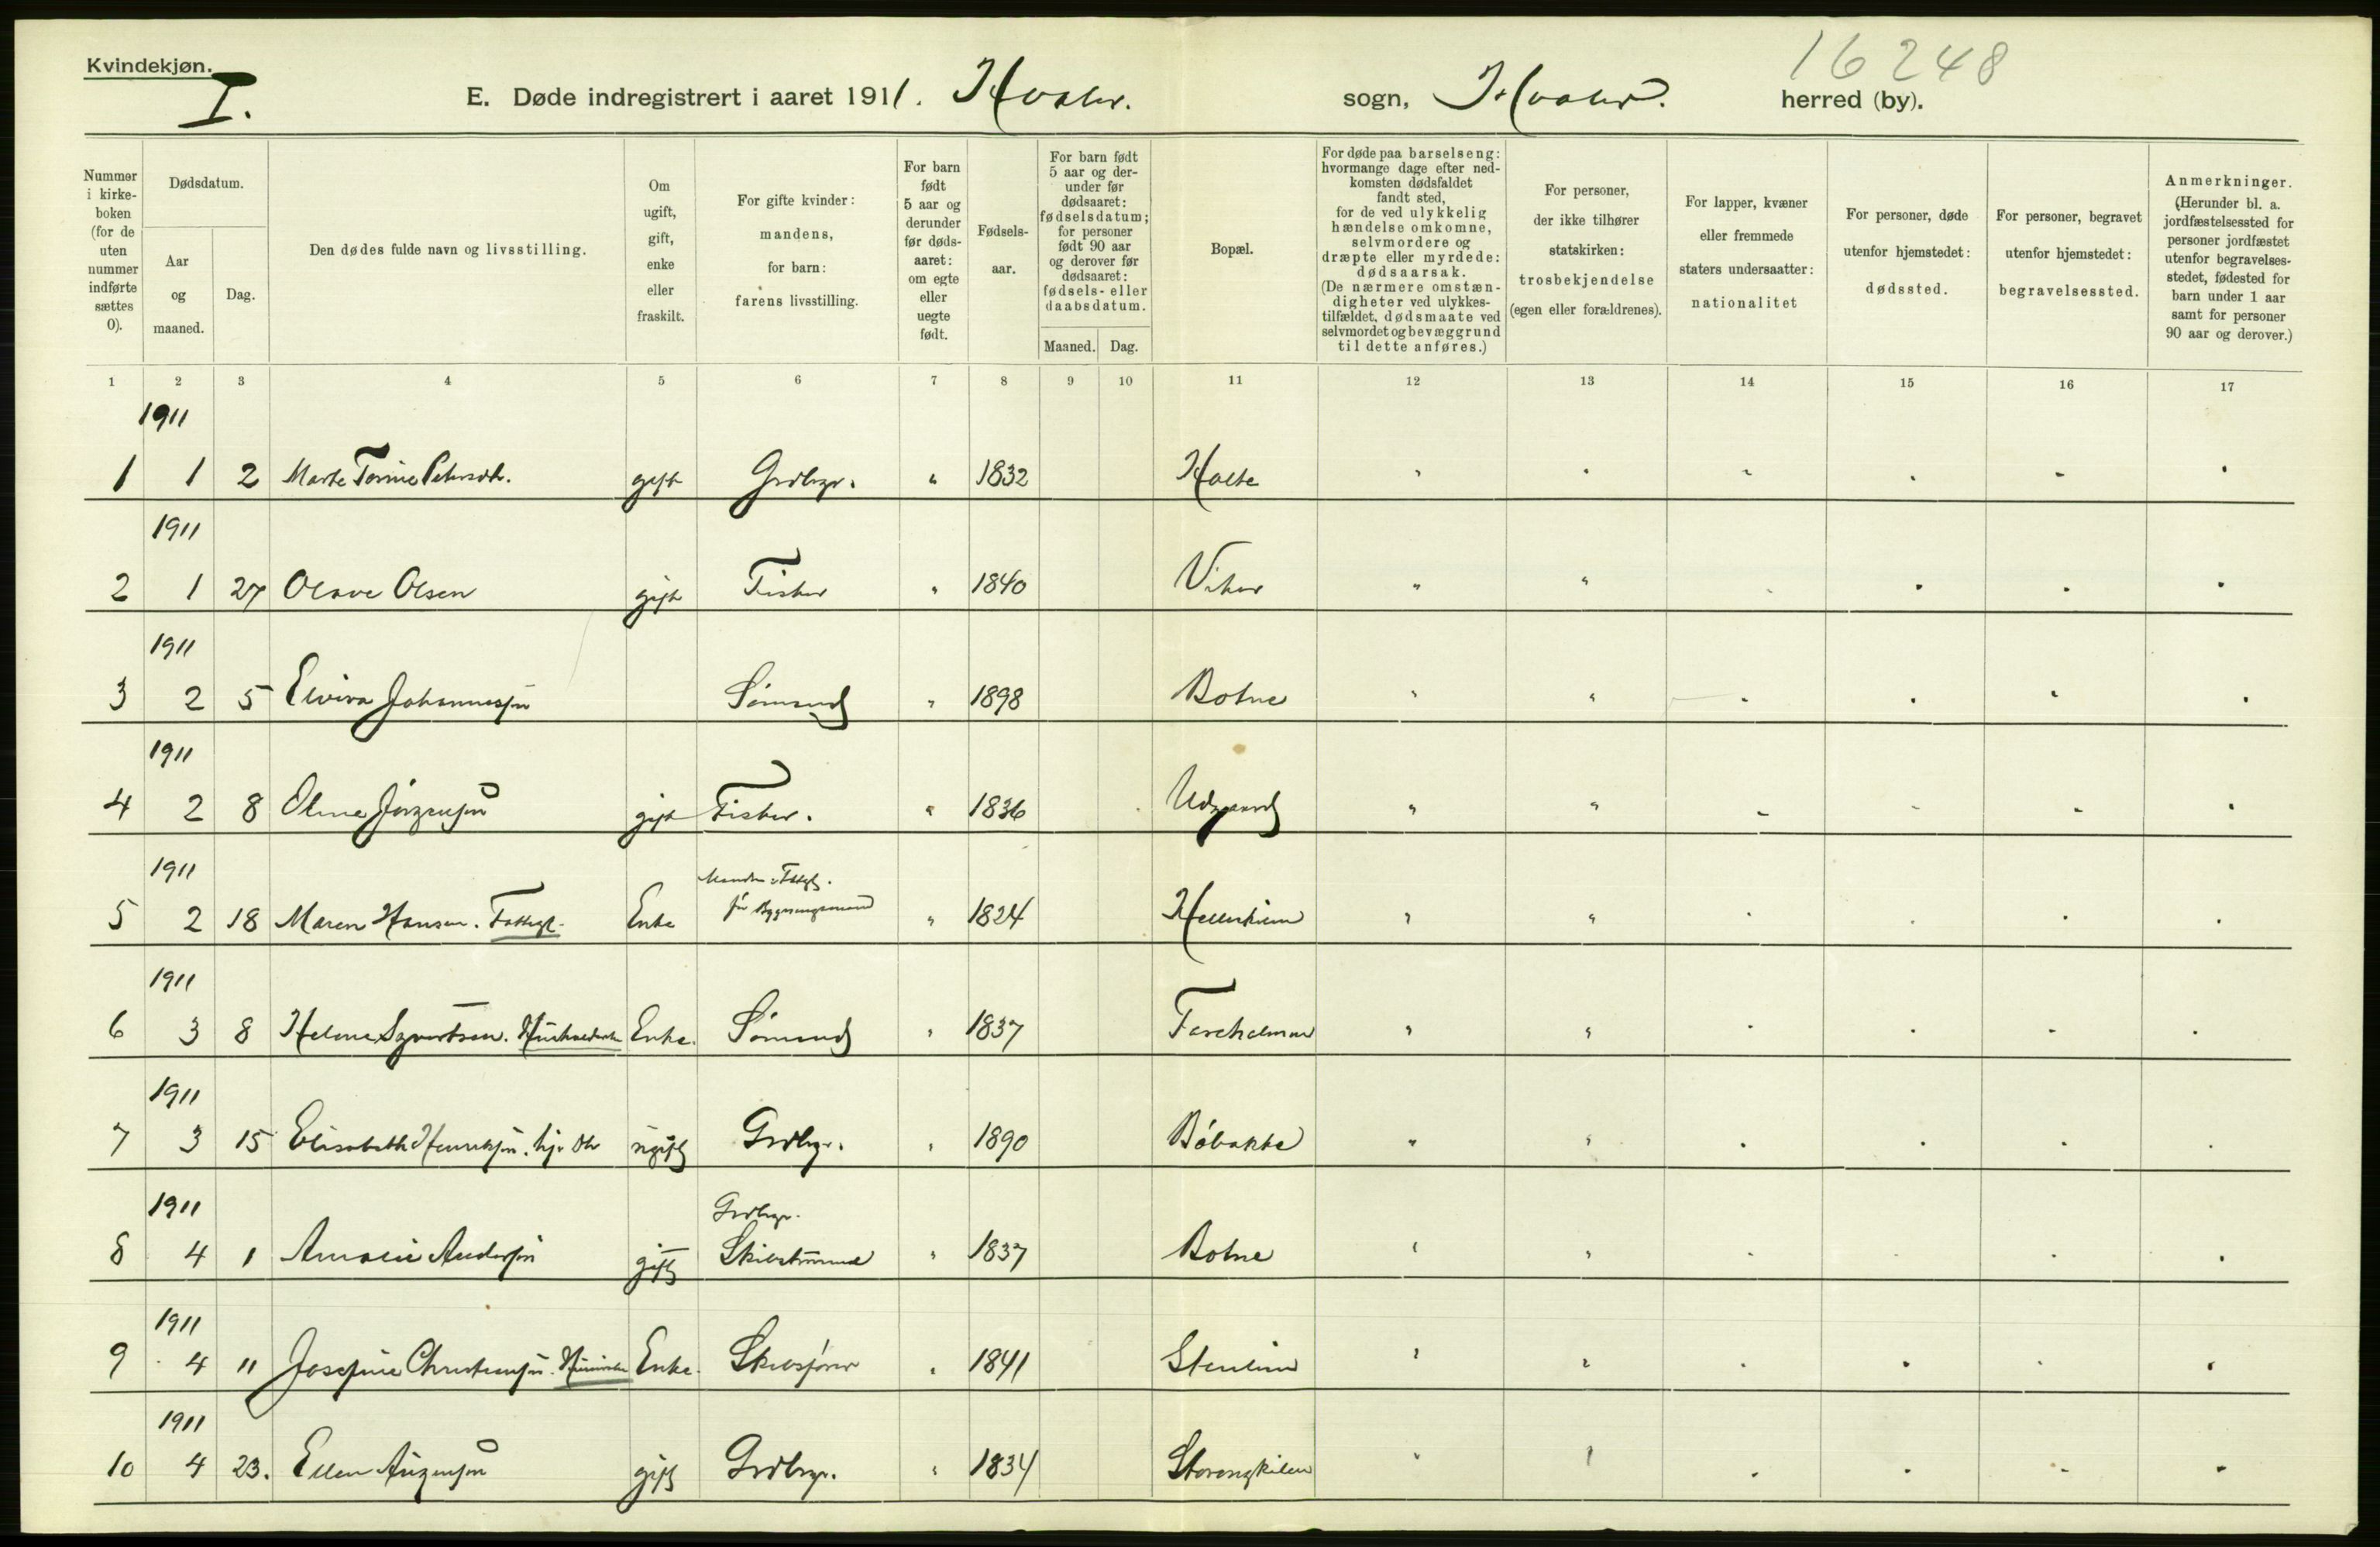 Kvindekjøn.
I.
16248
E. Døde indregistrert i aaret 1911. Hvaler. sogn, Hvaler. herred (by).
Nummer i kirke-boken (for de uten nummer indførte sættes 0).
Dødsdatum.
Aar og maaned.
Dag.
Den dødes fulde navn og livsstilling.
Om ugift, gift, enke eller fraskilt.
For gifte kvinder: mandens, for barn: farens livsstilling.
For barn født 5 aar og derunder før døds-aaret: om egte eller uegte født.
Fødsels-aar.
For barn født 5 aar og der-under før dødsaaret: fødselsdatum; for personer født 90 aar og derover før dødsaaret: fødsels- eller daabsdatum.
Maaned. Dag.
Bopæl.
For døde paa barselseng: hvormange dage efter ned-komsten dødsfaldet fandt sted, for de ved ulykkelig hændelse omkomne, selvmordere og dræpte eller myrdede: dødsaarsak. (De nærmere omstæn-digheter ved ulykkes-tilfældet, dødsmaate ved selvmordet og bevæggrund til dette anføres.)
For personer, der ikke tilhører statskirken: trosbekjendelse (egen eller forældrenes).
For lapper, kvæner eller fremmede staters undersaatter: nationalitet
For personer, døde utenfor hjemstedet: dødssted.
For personer, begravet utenfor hjemstedet: begravelsessted.
Anmerkninger. (Herunder bl. a. jordfæstelsessted for personer jordfæstet utenfor begravelses-stedet, fødested for barn under 1 aar samt for personer 90 aar og derover.)
1 2 3 4 5 6 7 8 9 10 11 12 13 14 15 16 17
1911
1 1 2 Marte Torine gift Grdbrgr. " 1832
1911
2 1 27 Olave Olsen gift Fisker " 1840 Viker
1911
3 2 5 Elvira Johannessen Sømand " 1898 Botne
1911
4 2 8 Oline Jørgensen gift Fisker. " 1836 Udgaard
1911
5 2 18 Maren Hansen. Fattigl. Enke " 1824
1911
6 3 8 Helene Enke. Sømand " 1837
1911
7 3 15 Elisabeth Henriksen. ugift Grdbrgr. " 1890 Bøbakke
1911 Grdbrgr.
8 4 1 Amalie Andersen gift " 1837 Botne
1911
9 4 11 Josefine Christensen. Enke. Skibsfører " 1841
1911
10 4 23. Ellen gift Grdbrgr. " 1834